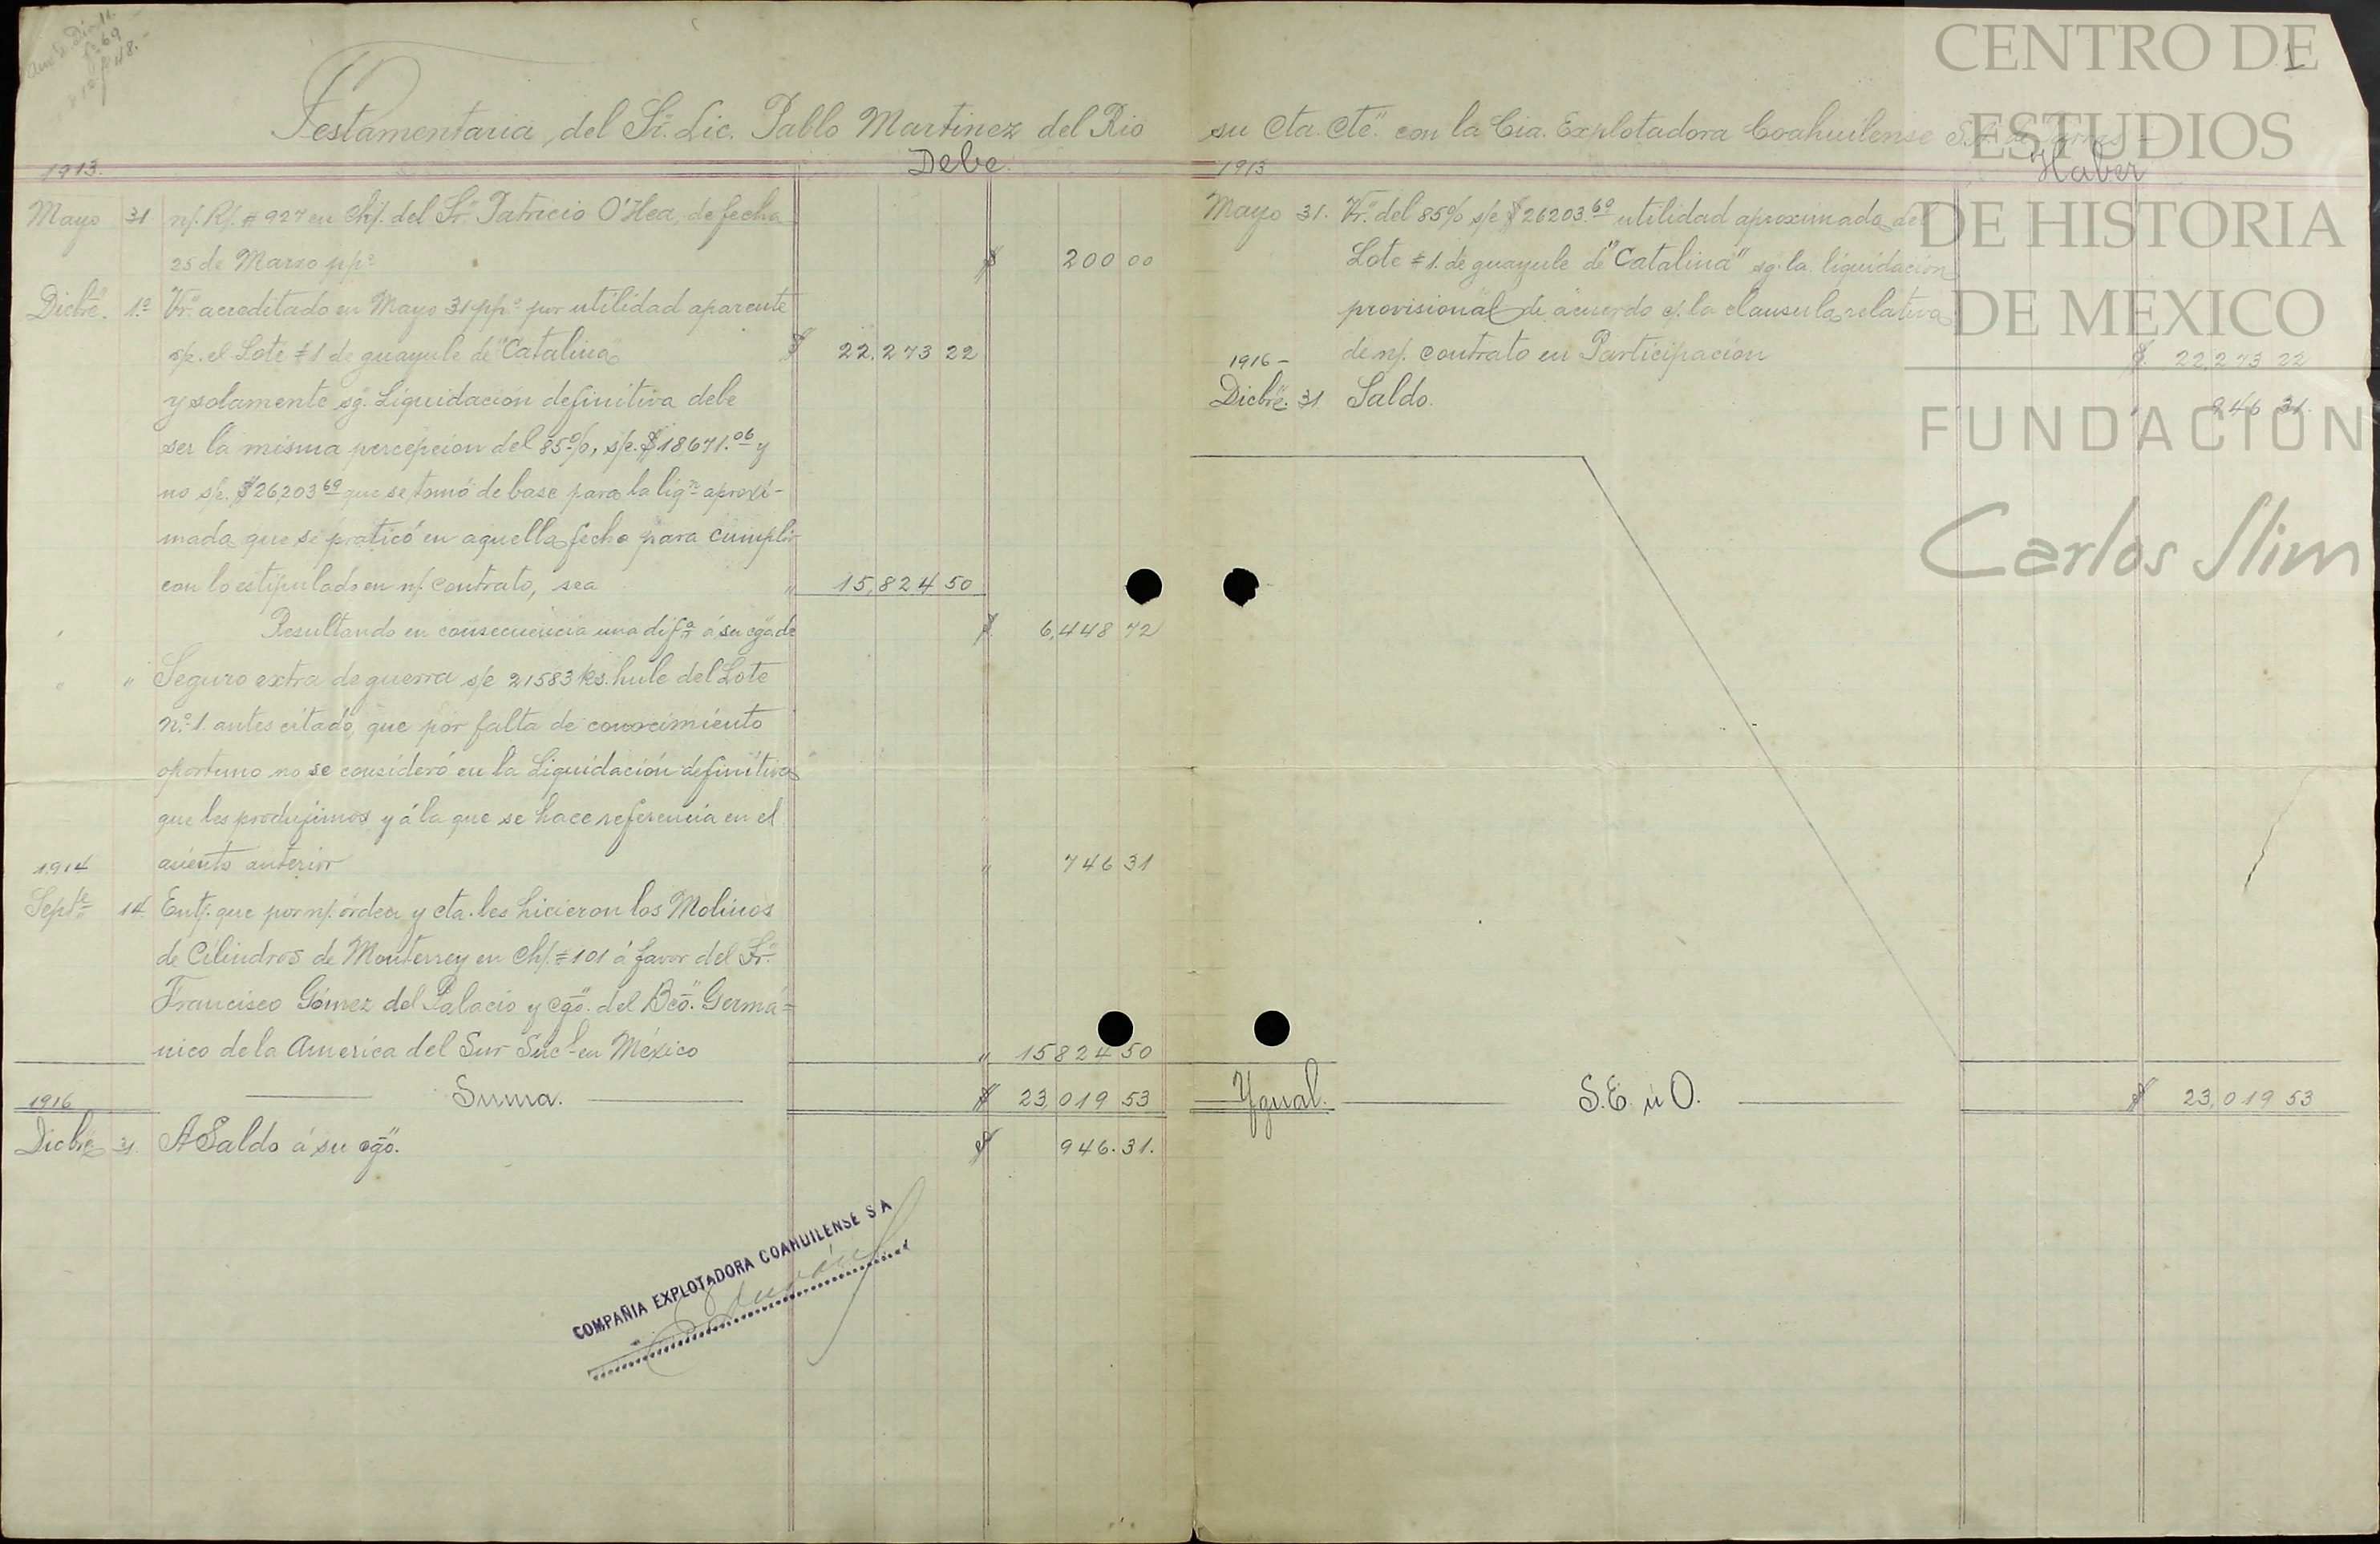 Testamentaria del Sr. Lic. Pablo Martinez del Rio su Cta. Cte. con la Cia. Explotadora Coahuilense S.A.
1913. Debe.
Mayo 31 n/. R/. # 927 en Ch/. del Sr. Patricio O'Hea, de fecha
25 de Marzo pp.º $ 200 00
Dicbre. 1.º Vr. acreditado en Mayo 31 pp.º por utilidad aparente
s/e. el Lote # 1 de guayule de "Catalina" $ 22,273 22
y solamente sg. Liquidacion definitiva debe
ser la misma percepcion del 85%, s/e. $18671.06 y
no s/e. $26,203 69 que se tomó de base para la liqn. aproxi-
mada que se praticó en aquella fecha para cumplir
con lo estipulado en n/. contrato, sea " 15,824 50
Resultando en consecuencia una difa. á su cgo. de $ 6,448 72
" " Seguro extra de guerra s/e 21583 ks. hule del Lote
n.º 1. antes citado, que por falta de conocimiento
oportuno no se consideró en la Liquidación definitiva
que les produjimos y á la que se hace referencia en el
asiento anterior " 746 31
1914
Septe. 14 Ent/. que por n/. órden y cta. les hicieron los Molinos
de Cilindros de Monterrey en Ch/. # 101 á favor del Sr.
Francisco Gómez del Palacio y cgo. del Bco. Germá=
nico de la America del Sur Sucl. en México " 15824 50
Suma. $ 23,019 53
1916
Dicbre 31. A Saldo á su cgo. $ 946.31.
COMPAÑIA EXPLOTADORA COAHUILENSE S A
1913 Haber
Mayo 31. Vr. del 85% s/e $ 26203.69 utilidad aproximada del
Lote # 1. de guayule de "Catalina" sg. la liquidación
provisional de acuerdo c/. la clausula relativa
de n/. contrato en Participacion $. 22,273 22
1916-
Dicbre. 31 Saldo. " 946 31.
Ygual. S.E. ú O. $ 23,019 53
1
CENTRO DE
ESTUDIOS
DE HISTORIA
DE MEXICO
FUNDACION
Carlos Slim